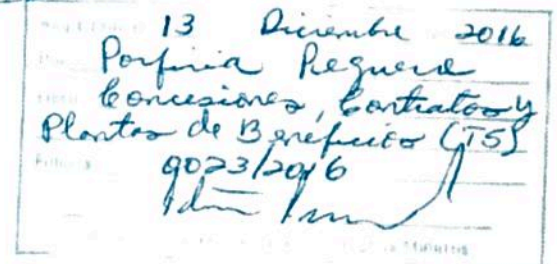 13 Diciembre 2016
Porfiria Reguera
Concesiones, Contratos y
Plantas de Beneficio (TS)
9023/2016